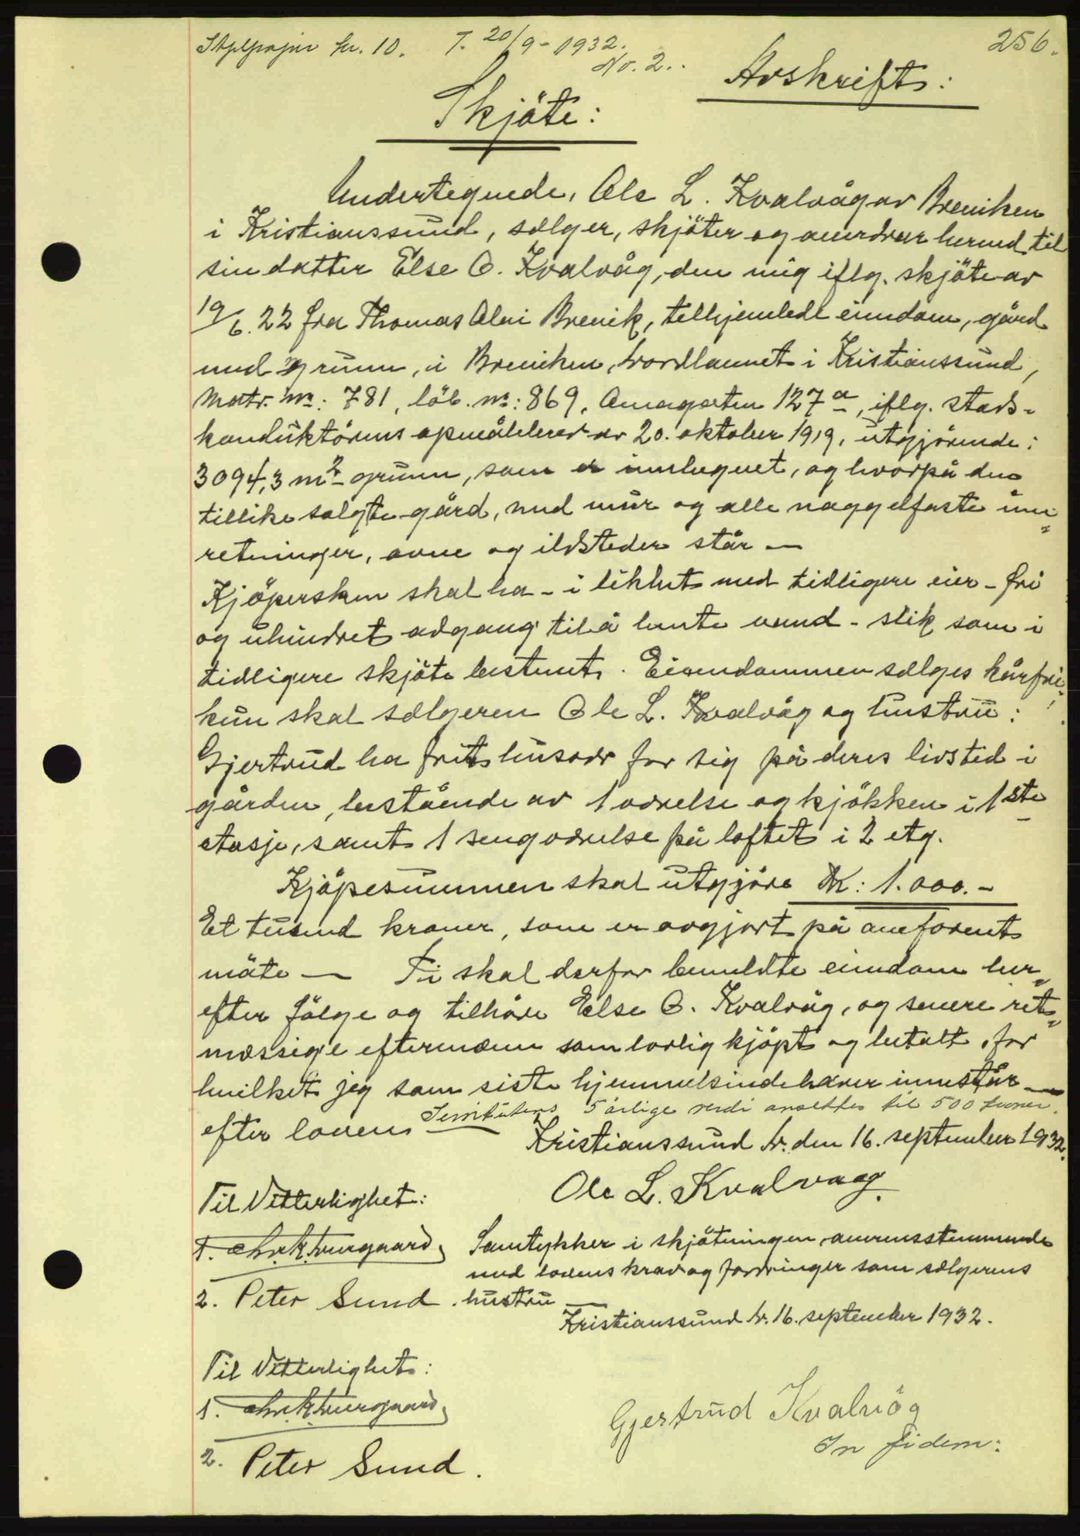 Stplpapir kr. 10. T. 20/9-1932. 256.
No. 2.
Avskrift:
Skjöte:
Undertegnede, Ole L. Kvalvåg av Breviken
i Kristianssund, sælger, skjöter og avendrar herved til
sin datter Else O. Kvalvåg, den mig iflg. skjöte av
19/6.22 fra Thomas Brevik, tilhjemlede eiendom, gård
med grunn, i Breviken, Nordlannet i Kristianssund,
Matr. No: 781, löb. No: 869, 127a, iflg. stads-
konduktörens opmålebrev av 20. oktober 1919, utgjörende:
3094,3 m2 grunn, som er innhegnet, og hvorpå den
tillike solgte gård, med mur og alle naggelfaste inn-
retninger, ovne og ildsteder står —
Kjöpersken skal ha - i likhet med tidligere eier - fri
og uhindret adgang til å hente vand - slik som i
tidligere skjöte bestemt. Eiendommen sælges kårfri,
kun skal sælgeren Ole L. Kvalvåg og hustru:
Gjertrud ha frit husvær for sig på deres livstid i
gården, bestående av 1 værelse og kjökken i 1ste
etasje, samt 1 sengeværelse på loftet i 2 etg.
Kjöpesummen skal utgjöre Kr: 1.000.-
Et tusend kroner, som er avgjort på omforent
måte — Ti skal derfor bemeldte eiendom her-
efter følge og tilhøre Else O. Kvalvåg, og senere ret-
mæssige eftermænn som lovlig kjöpt og betalt, for
hvilket jeg som siste hjemmelsindehaver innestår —
efter loven. Servitutens 5 årlige verdi ansettes til 500 kroner.
Kristianssund N. den 16. september 1932.
Ole L. Kvalvaag.
Til Vitterlighet:
1.
Samtykker i skjötningen, overensstemmende
med lovens krav og fordringer som sælgerens
2. Peter Sund. hustru —
Kristianssund N. 16. september 1932.
Til Vitterlighet:
1.
Gjertrud Kvalvåg
In fidem:
2. Peter Sund.